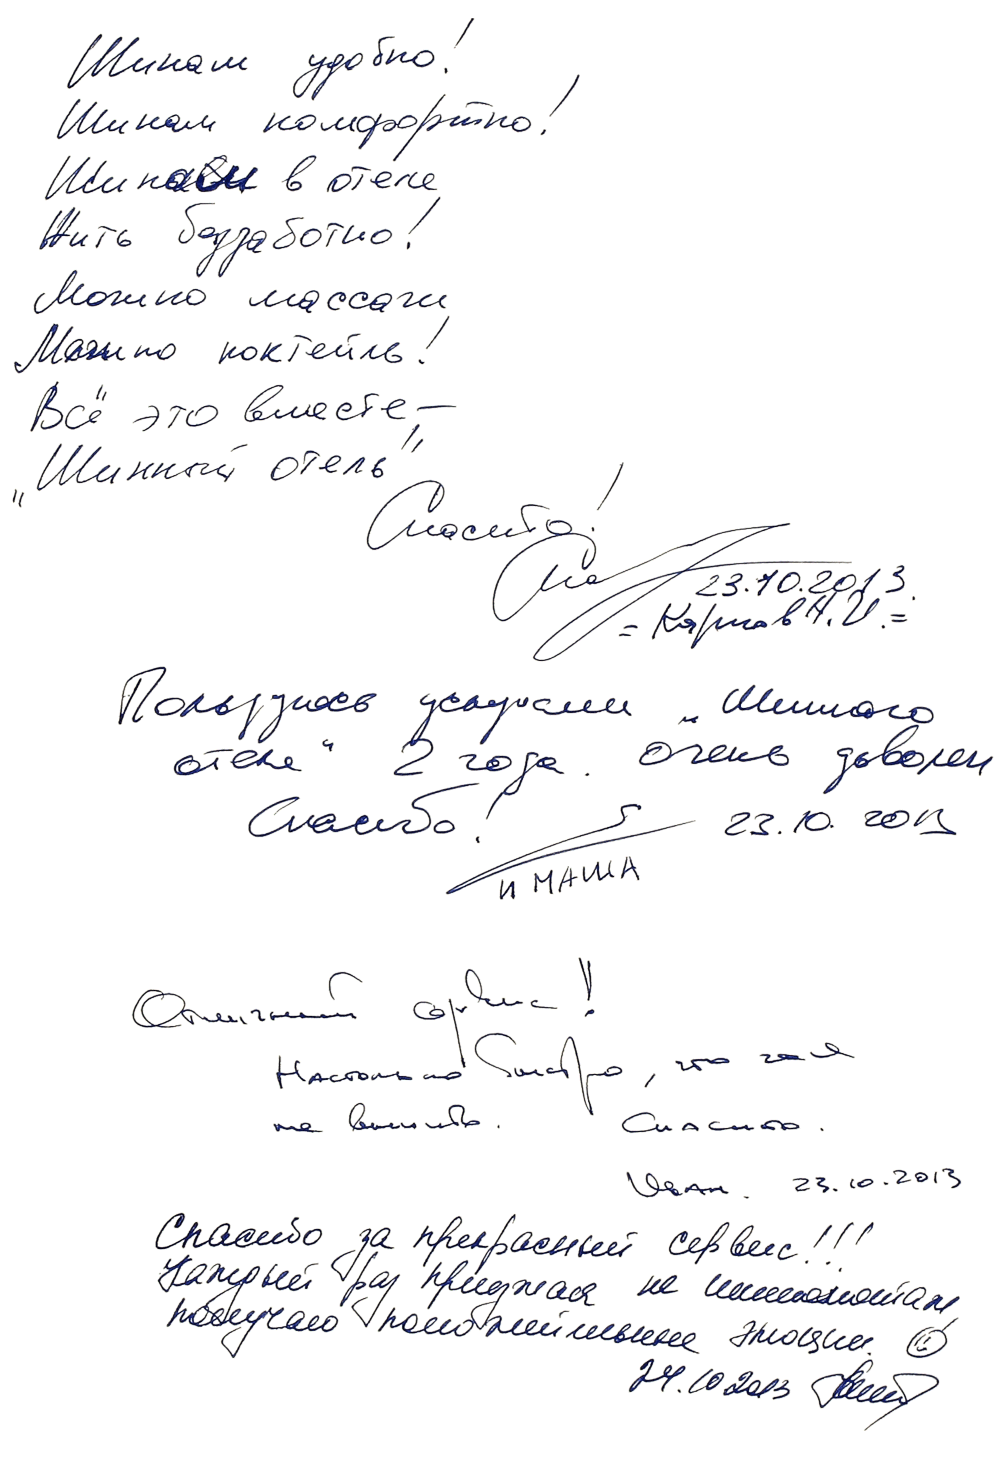 Шинам удобно!
Шинам комфортно!
Шинам в отеле
Жить беззаботно!
Можно массаж
Можно коктейль!
Всё это вместе, –
„Шинный отель"
Спасибо!
23.10.2013.
= Карпов А.И. =
Пользуюсь услугами „Шинного
отеля" 2 года. очень доволен
Спасибо! 23.10.2013
и МАША
Отличный сервис!
Настолько быстро, что чая
не выпить. Спасибо.
Иван. 23.10.2013
Спасибо за прекрасный сервис!!!
Каждый раз приезжая на шиномонтаж
получаю положительные эмоции.
24.10 2013